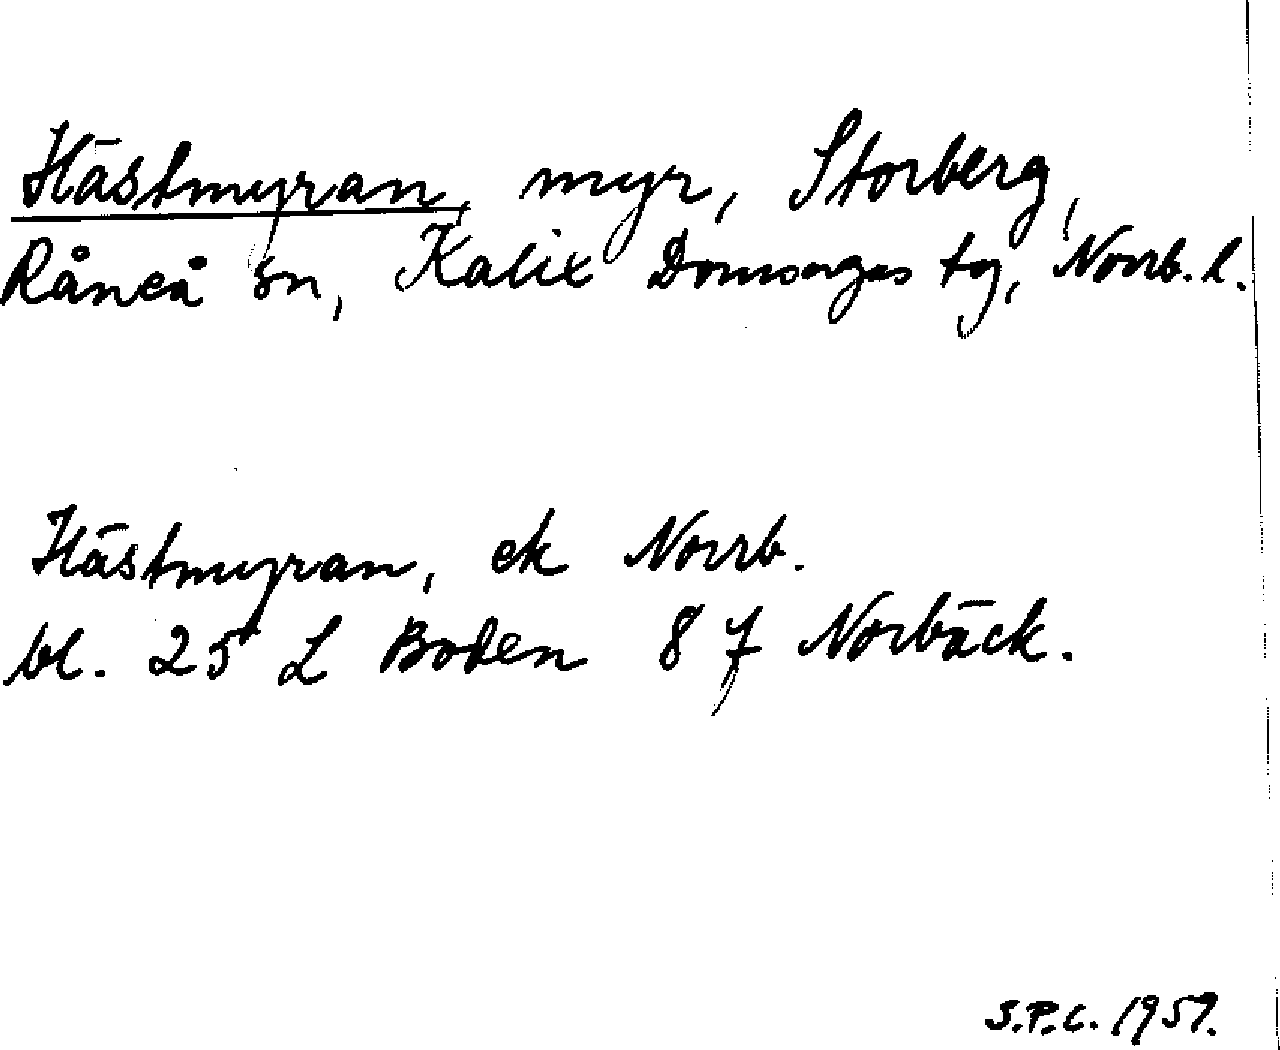 Hästmyran, myr, Storberg,
Råneå sn, Kalix Domsagas tg, Norrb. l.
Hästmyran, ek Norrb.
bl. 25 L Boden 8 f Norbäck.
S.P.C. 1959.